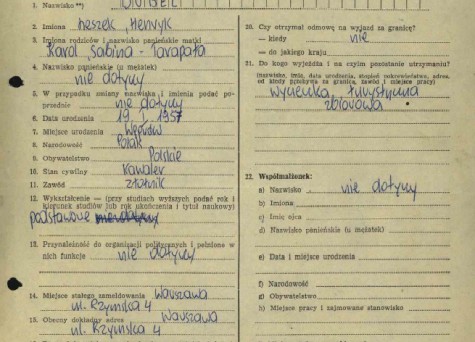 1. Nazwisko **)
2. Imiona Leszek, Henryk
3. Imiona rodziców i nazwisko panieńskie matki
Karol Sabina - Tarapata
4. Nazwisko panieńskie (u mężatek)
nie dotyczy
5. W przypadku zmiany nazwiska i imienia podać poprzednie
nie dotyczy
6. Data urodzenia 19 I 1957
7. Miejsce urodzenia Węgrów
8. Narodowość Polak
9. Obywatelstwo Polskie
10. Stan cywilny kawaler
11. Zawód złotnik
12. Wykształcenie — (przy studiach wyższych podać rok i
kierunek studiów lub rok ukończenia i tytuł naukowy)
podstawowe
13. Przynależność do organizacji politycznych i pełnione w
nich funkcje nie dotyczy
14. Miejsce stałego zameldowania Warszawa
ul. Rzymska 4
15. Obecny dokładny adres Warszawa
ul. Rzymska 4
20. Czy otrzymał odmowę na wyjazd za granicę?
— kiedy nie
— do jakiego kraju
21. Do kogo wyjeżdża i na czyim pozostanie utrzymaniu?
(nazwisko, imię, data urodzenia, stopień pokrewieństwa, adres,
od kiedy przebywa za granicą, zawód i miejsce pracy)
wycieczka turystyczna
zbiorowa
22. Współmałżonek:
a) Nazwisko nie dotyczy
b) Imiona
c) Imię ojca
d) Nazwisko panieńskie (u mężatek)
e) Data i miejsce urodzenia
f) Narodowość
g) Obywatelstwo
h) Miejsce pracy i zajmowane stanowisko